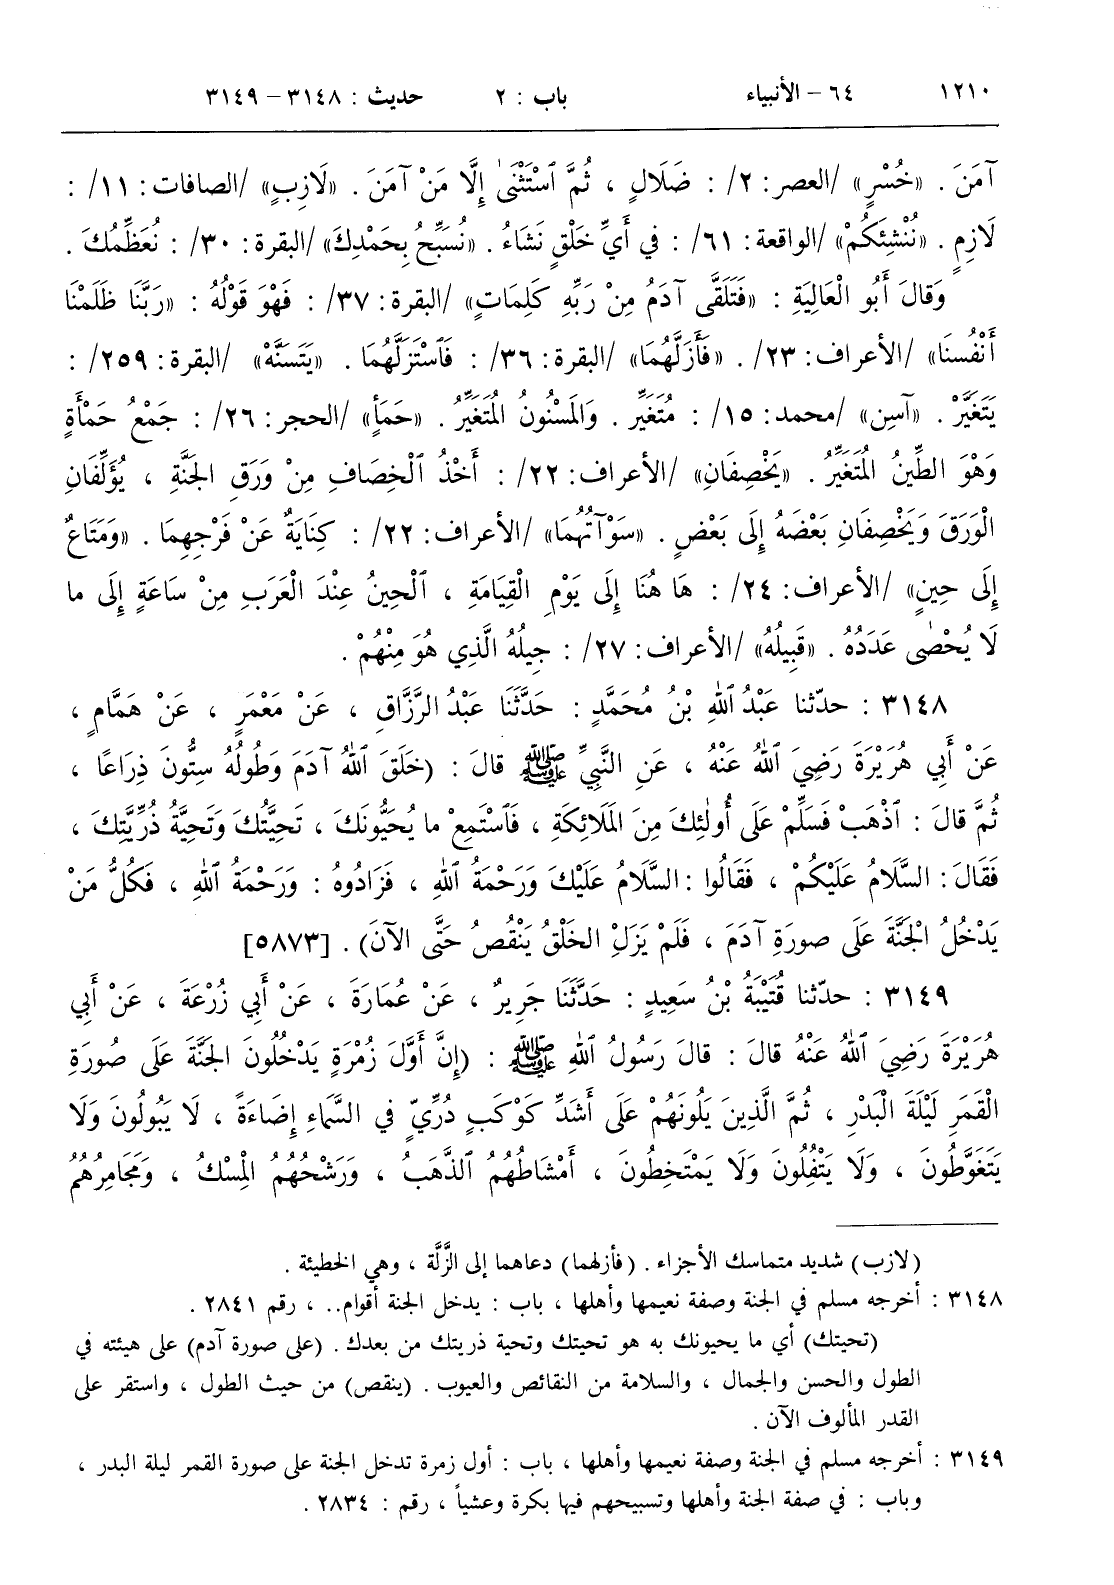 ١٢١٠ ٦٤ – الأنبياء باب : ٢ حديث : ٣١٤٨ – ٣١٤٩
آمَنَ . «خُسْرٍ» /العصر: ٢/ : ضَلَالٍ ، ثُمَّ ٱسْتَثْنَىٰ إِلَّا مَنْ آمَنَ . «لَازِبٍ» /الصافات: ١١/ :
لَازِمٍ . «نُنْشِئَكُمْ» /الواقعة: ٦١/ : في أَيِّ خَلْقٍ نَشَاءُ . «نُسَبِّحُ بِحَمْدِكَ» /البقرة: ٣٠/ : نُعَظِّمُكَ .
وَقالَ أَبُو الْعَالِيَةِ : «فَتَلَقَّى آدَمُ مِنْ رَبِّهِ كَلِمَاتٍ» /البقرة: ٣٧/ : فَهْوَ قَوْلُهُ : «رَبَّنَا ظَلَمْنَا
أَنْفُسَنَا» /الأعراف: ٢٣/ . «فَأَزَلَّهُمَا» /البقرة: ٣٦/ : فَٱسْتَزَلَّهُمَا . «يَتَسَنَّهْ» /البقرة: ٢٥٩/ :
يَتَغَيَّرْ . «آسِن» /محمد: ١٥/ : مُتَغَيِّر . وَالمَسْنُونُ المُتَغَيِّرُ . «حَمَأٍ» /الحجر: ٢٦/ : جَمْعُ حَمْأَةٍ
وَهْوَ الطِّينُ المُتَغَيِّرُ . «يَخْصِفَانِ» /الأعراف: ٢٢/ : أَخْذُ ٱلْخِصَافِ مِنْ وَرَقِ الجَنَّةِ ، يُؤَلِّفَانِ
الْوَرَقَ وَيَخْصِفَانِ بَعْضَهُ إِلَى بَعْضٍ . «سَوْآتُهُمَا» /الأعراف: ٢٢/ : كِنَايَةٌ عَنْ فَرْجِهِمَا . «وَمَتَاعٌ
إِلَى حِينٍ» /الأعراف: ٢٤/ : هَا هُنَا إِلَى يَوْمِ الْقِيَامَةِ ، ٱلْحِينُ عِنْدَ الْعَرَبِ مِنْ سَاعَةٍ إِلَى ما
لَا يُحْصٰى عَدَدُهُ . «قَبِيلُهُ» /الأعراف: ٢٧/ : جِيلُهُ الَّذِي هُوَ مِنْهُمْ .
٣١٤٨ : حدّثنا عَبْدُ ٱللهِ بْنُ مُحَمَّدٍ : حَدَّثَنَا عَبْدُ الرَّزَّاقِ ، عَنْ مَعْمَرٍ ، عَنْ هَمَّامٍ ،
عَنْ أَبِي هُرَيْرَةَ رَضِيَ ٱللهُ عَنْهُ ، عَنِ النَّبِيِّ ﷺ قالَ : (خَلَقَ ٱللهُ آدَمَ وَطُولُهُ سِتُّونَ ذِرَاعًا ،
ثُمَّ قالَ : ٱذْهَبْ فَسَلِّمْ عَلَى أُولٰئِكَ مِنَ المَلَائِكَةِ ، فَٱسْتَمِعْ ما يُحَيُّونَكَ ، تَحِيَّتُكَ وَتَحِيَّةُ ذُرِّيَّتِكَ ،
فَقَالَ : السَّلَامُ عَلَيْكُمْ ، فَقَالُوا : السَّلَامُ عَلَيْكَ وَرَحْمَةُ ٱللهِ ، فَزَادُوهُ : وَرَحْمَةُ ٱللهِ ، فَكُلُّ مَنْ
يَدْخُلُ الْجَنَّةَ عَلَى صورَةِ آدَمَ ، فَلَمْ يَزَلِ الخَلْقُ يَنْقُصُ حَتَّى الآنَ) . [٥٨٧٣]
٣١٤٩ : حدّثنا قُتَيْبَةُ بْنُ سَعِيدٍ : حَدَّثَنَا جَرِيرٌ ، عَنْ عُمَارَةَ ، عَنْ أَبِي زُرْعَةَ ، عَنْ أَبِي
هُرَيْرَةَ رَضِيَ ٱللهُ عَنْهُ قالَ : قالَ رَسُولُ ٱللهِ ﷺ : (إِنَّ أَوَّلَ زُمْرَةٍ يَدْخُلُونَ الجَنَّةَ عَلَى صُورَةِ
الْقَمَرِ لَيْلَةَ الْبَدْرِ ، ثُمَّ الَّذِينَ يَلُونَهُمْ عَلَى أَشَدِّ كَوْكَبٍ دُرِّيٍّ في السَّمَاءِ إِضَاءَةً ، لَا يَبُولُونَ وَلَا
يَتَغَوَّطُونَ ، وَلَا يَتْفِلُونَ وَلَا يَمْتَخِطُونَ ، أَمْشَاطُهُمُ ٱلذَّهَبُ ، وَرَشْحُهُمُ الْمِسْكُ ، وَمَجَامِرُهُمُ
(لازب) شديد متماسك الأجزاء . (فأزلهما) دعاهما إلى الزَّلَّة ، وهي الخطيئة .
٣١٤٨ : أخرجه مسلم في الجنة وصفة نعيمها وأهلها ، باب : يدخل الجنة أقوام.. ، رقم ٢٨٤١ .
(تحيتك) أي ما يحيونك به هو تحيتك وتحية ذريتك من بعدك . (على صورة آدم) على هيئته في
الطول والحسن والجمال ، والسلامة من النقائص والعيوب . (ينقص) من حيث الطول ، واستقر على
القدر المألوف الآن .
٣١٤٩ : أخرجه مسلم في الجنة وصفة نعيمها وأهلها ، باب : أول زمرة تدخل الجنة على صورة القمر ليلة البدر ،
وباب : في صفة الجنة وأهلها وتسبيحهم فيها بكرة وعشياً ، رقم : ٢٨٣٤ .